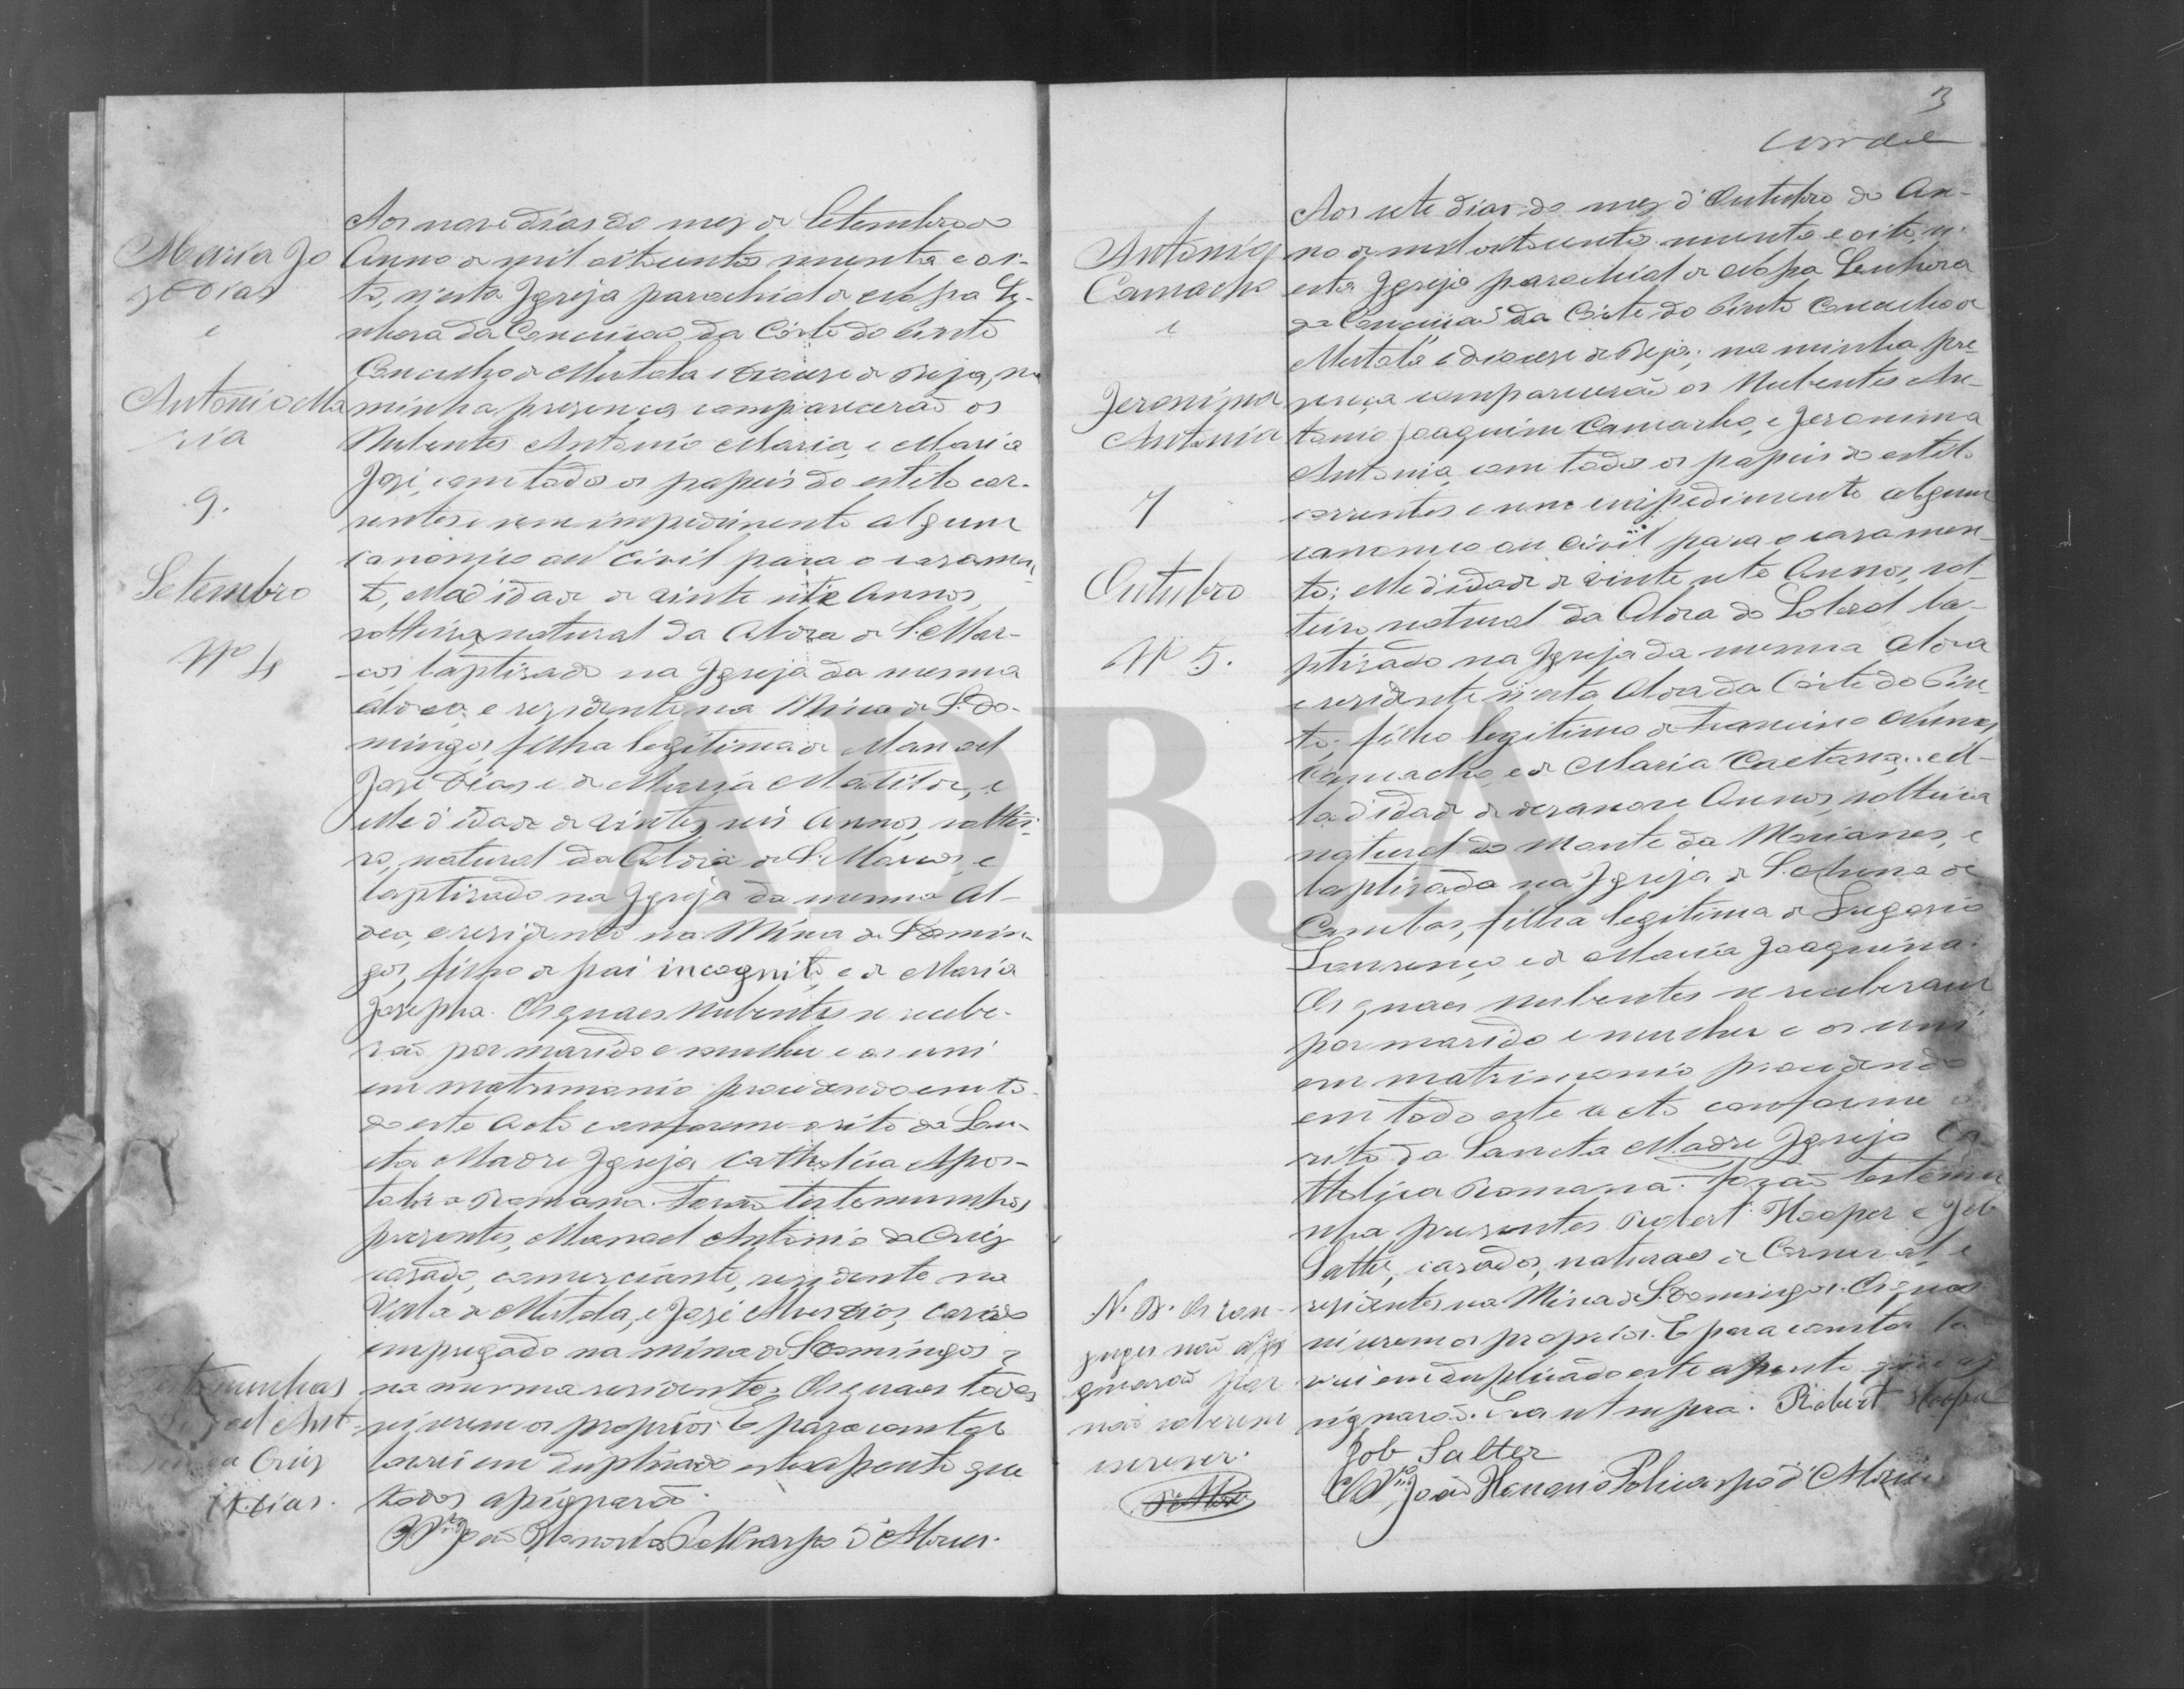 Maria Jo
sé Dias
e
Antonio Ma
ria
9.
Setembro
Nº 4
Aos nove dias do mez de Setembro do
Anno de mil oitocentos noventa e oi-
to, n'esta Igreja parochial de Nossa Se-
nhora da Conceicão da Côrte do Pinto
Concelho de Mertola e Diocese de Beja, na
minha presença comparecerão os
Nubentes Antonio Maria, e Maria
José, com todos os papeis do estilo cor-
rentes e sem impedimento algum
canonico ou civil para o casamen-
to, Ella d'idade de vinte sete Annos,
solteira natural da Aldea de S. Mar-
cos baptisada na Igreja da mesma
Aldea, e rezidente na Mina de S. Do-
mingos, filha legitima de Manoel
José Dias e de Maria Matilde, e
elle d'idade de vinte seis Annos, soltei-
ro, natural da Aldeia de S. Marcos, e
baptisado na Igreja da mesma Al-
dea, e residente na Mina de S. Domin-
gos, filho de pai incognito, e de Maria
Josepha. Os quaes Nubentes se recebe-
rão por marido e mulher e os uni
em matrimonio procedendo em to-
do este Acto conforme o rito da San-
cta Madre Igreja Catholica Apos-
tolica Romana. Forão testemunhas
presentes, Manoel Antonio da Cruz
casado, comerciante, rezidente na
Villa de Mertola, e José Dias, casado
empregado na mina de S. Domingos e
na mesma residente. Os quaes todos
sei serem os proprios. E para constar
lavrei em duplicado este assento que
todos assignarão.
João Honorio Policarpo d'Abreu.
Testemunhas
Manoel Ant
da Cruz
Dias.
3
Antonio
Camacho
e
Jeronima
Antonia
7
Outubro
Nº 5.
Aos sete dias do mez d'Outubro do An-
no de mil oitocentos noventa e oito, n'-
esta Igreja parochial de Nossa Senhora
da Conceicão da Côrte do Pinto Concelho de
Mertola e diocese de Beja; na minha pre-
sença comparecerão os Nubentes An-
tonio Joaquim Camacho, e Jeronima
Antonia, com todos os papeis do estilo
correntes e sem impedimento algum
canonico ou civil para o casamen-
to; elle d'idade de vinte sete Annos, sol-
teiro natural da Aldea do Sobral ba-
ptisado na Igreja da mesma Aldea
e residente n'esta Aldea da Côrte do Pin-
to; filho legitimo de Francisco Nunes
Camacho, e de Maria Caetana; el-
la d'idade de dezanove Annos, solteira
natural do Monte da Marianes, e
baptisada na Igreja de S. Anna de
Cambas, filha legitima de Gregorio
Lourenço e de Maria Joaquina.
Os quaes nubentes se receberam
por marido e mulher e os uni
em matrimonio procedendo
em todo este acto conforme o
rito da Sancta Madre Igreja Ca
tholica Romana. Forão testemu
nha presentes Robert Hooper e Job
Salter, casados, naturaes de Cornual, e
residentes na Mina de S. Domingos. Os quaes
sei serem os proprios. E para constar la
vrei em duplicado este assento que as
signarão. Era ut supra. Robert Hooper
Job Salter
João Honorio Policarpo d'Abreu.
N. B. Os con-
juges não assi
gnarão por
não saberem
escrever.
ADBJA